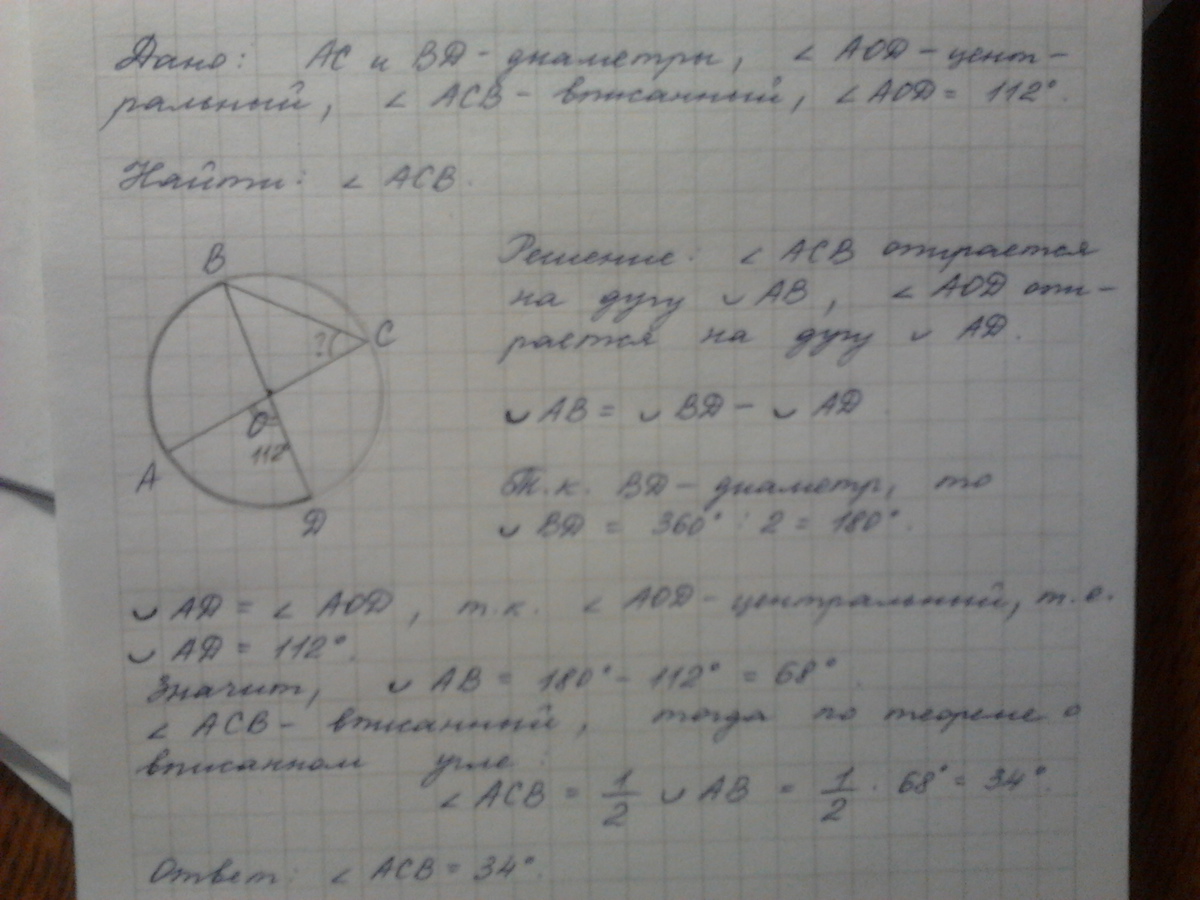 Дано: AC и BD - диаметры, ∠ AOD - цент-
ральный, ∠ ACB - вписанный, ∠ AOD = 112°.
Найти: ∠ ACB.
B
C
?
O
112°
A
D
Решение: ∠ ACB опирается
на дугу ◡ AB, ∠ AOD опи-
рается на дугу ◡ AD.
◡ AB = ◡ BD - ◡ AD
Т.к. BD - диаметр, то
◡ BD = 360° : 2 = 180°.
◡ AD = ∠ AOD, т.к. ∠ AOD - центральный, т.е.
◡ AD = 112°.
Значит, ◡ AB = 180° - 112° = 68°.
∠ ACB - вписанный, тогда по теореме о
вписанном угле:
∠ ACB = 1/2 ◡ AB = 1/2 · 68° = 34°.
Ответ: ∠ ACB = 34°.